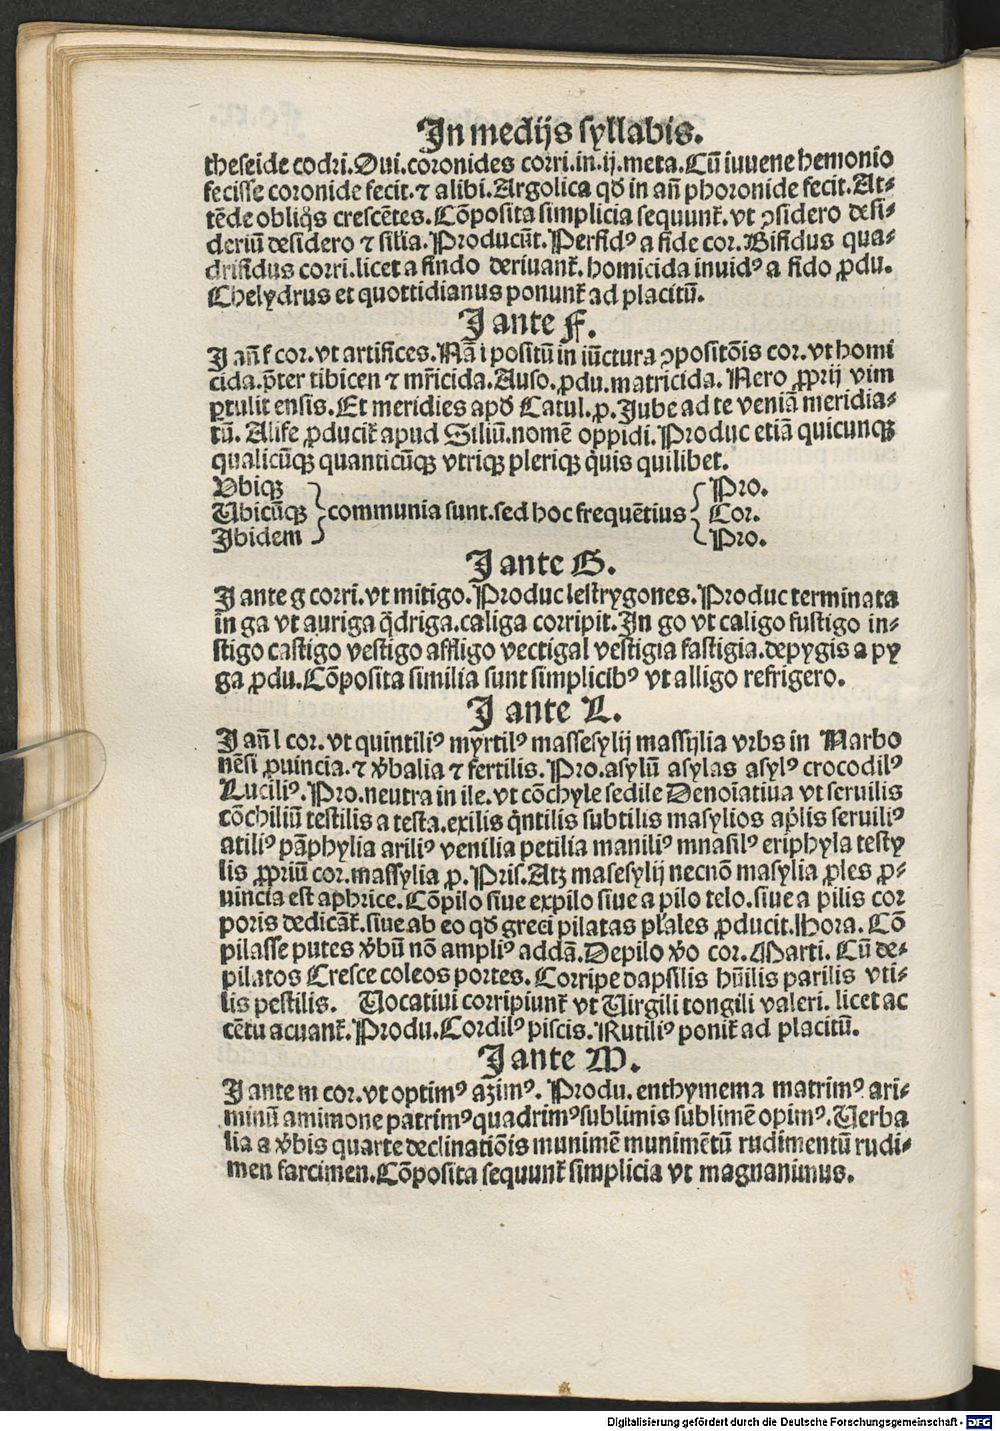 In medijs syllabis.
theseide codri. Oui. coronides corri. in. ij. meta. Cū iuuene hemonio
fecisse coronide fecit. ⁊ alibi. Argolica qđ in añ phoronide fecit. At⸗
tēde obliq̄s crescētes. Cōposita simplicia sequunt̄. vt ꝯsidero desi⸗
deriū desidero ⁊ silia. Producūt. Perfidꝰ a fide cor. Bifidus qua⸗
drifidus corri. licet a findo deriuant̄. homicida inuidꝰ a fido ꝓdu.
Chelydrus et quottidianus ponunt̄ ad placitū.
I ante F.
I añ f cor. vt artifices. Nā i positū in iūctura ꝯpositōis cor. vt homi
cida. p̄ter tibicen ⁊ mr̄icida. Auso. ꝓdu. matricida. Nero ꝓprij vim
ꝑtulit ensis. Et meridies apđ Catul. p. Iube ad te veniā meridia⸗
tū. Alife ꝓducit̄ apud Siliū. nomē oppidi. Produc etiā quicunqꝫ
qualicūqꝫ quanticūqꝫ vtriqꝫ pleriqꝫ quis quilibet.
Vbiqꝫ Pro.
Vbicūqꝫ communia sunt. sed hoc frequētius Cor.
Ibidem Pro.
I ante G.
I ante g corri. vt mitigo. Produc lestrygones. Produc terminata
in ga vt auriga q̄driga. caliga corripit. In go vt caligo fustigo in⸗
stigo castigo vestigo affligo vectigal vestigia fastigia. depygis a py
ga ꝓdu. Cōposita similia sunt simplicibꝰ vt alligo refrigero.
I ante L.
I añ l cor. vt quintiliꝰ myrtilꝰ massesylij massijlia vrbs in Narbo
nēsi ꝓuincia. ⁊ v̄balia ⁊ fertilis. Pro. asylū asylas asylꝰ crocodilꝰ
Luciliꝰ. Pro. neutra in ile. vt cōchyle sedile Denoīatiua vt seruilis
cōchiliū testilis a testa. exilis q̄ntilis subtilis masylios ap̄lis seruiliꝰ
atiliꝰ pāphylia ariliꝰ venilia petilia maniliꝰ mnasilꝰ eriphyla testy
lis ꝓpriū cor. massylia p. Pris. Atꝫ masesylij necnō masylia ꝓles ꝓ⸗
uincia est aphrice. Cōpilo siue expilo siue a pilo telo. siue a pilis cor
poris dedicāt̄. siue ab eo qđ greci pilatas pl̄ales ꝓducit. Hora. Cō
pilasse putes v̄bū nō ampliꝰ addā. Depilo v̄o cor. Marti. Cū de⸗
pilatos Cresce coleos portes. Corripe dapsilis hūilis parilis vti⸗
lis pestilis. Vocatiui corripiunt̄ vt Virgili tongili valeri. licet ac
cētu acuant̄. Produ. Cordilꝰ piscis. Rutiliꝰ ponit̄ ad placitū.
I ante M.
I ante m cor. vt optimꝰ azimꝰ. Produ. enthymema matrimꝰ ari⸗
minū amimone patrimꝰ quadrimꝰ sublimis sublimē opimꝰ. Verba
lia a v̄bis quarte declinatiōis munimē munimētū rudimentū rudi⸗
men farcimen. Cōposita sequunt̄ simplicia vt magnanimus.
Digitalisierung gefördert durch die Deutsche Forschungsgemeinschaft - DFG